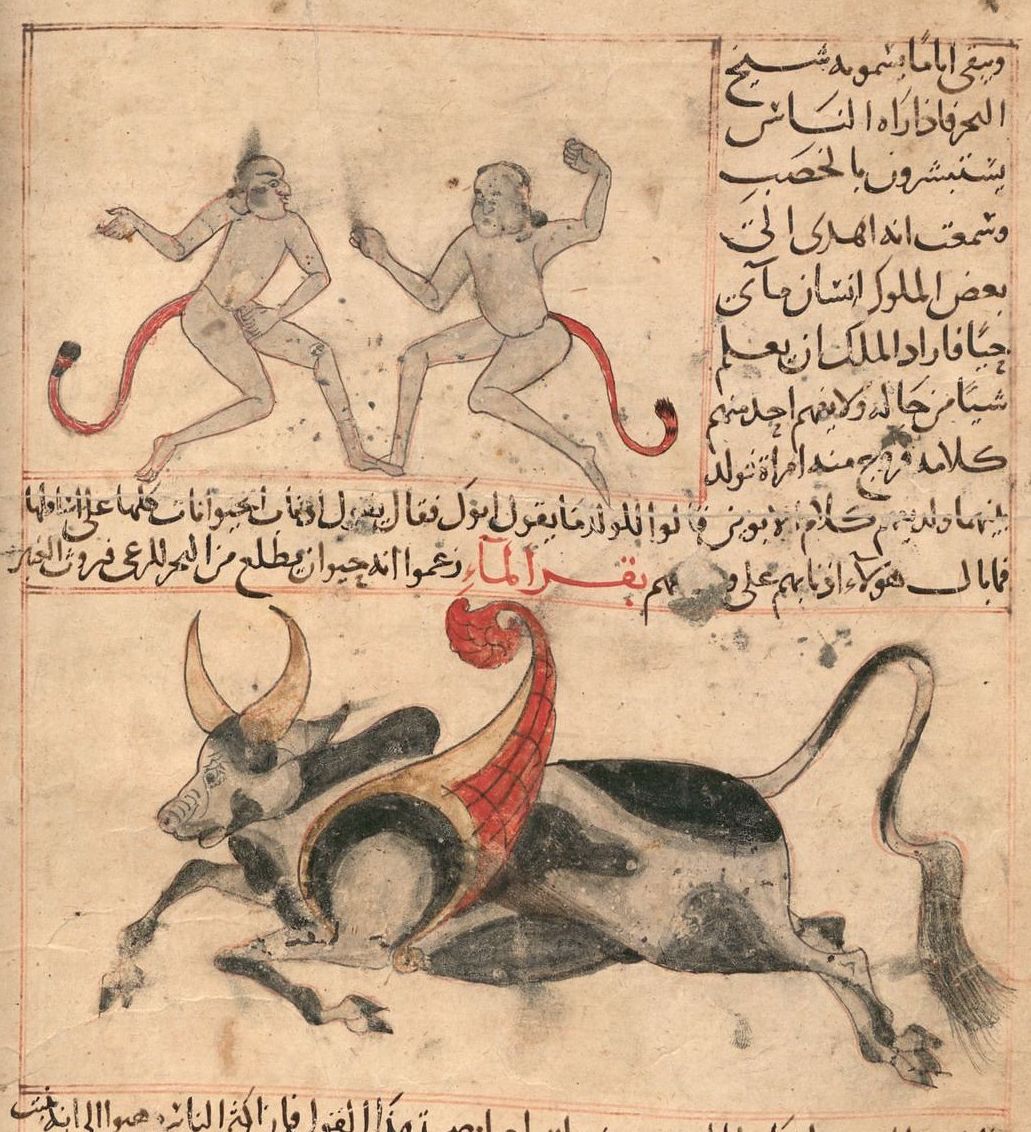 ويبقى اياما يسمونه شيخ
البحر فاذا راه الناس
يستبشرون بالخصب
وسمعت انه اهدى الى
بعض الملوك انسان مآئ
حيا فاراد الملك ان يعلم
شيا من حاله ولا يفهم احد منهم
كلامه فزوج منه امراة تولد
بينهما ولد يفهم كلام الابوين قالوا للولد ما يقول ابوك فقال يقول اذناب الحيوانات كلها على اسافلها
فما بال هولاء اذنابهم على بقر المآء زعموا انه حيوان يطلع من البحر للرعى فروث العنبر